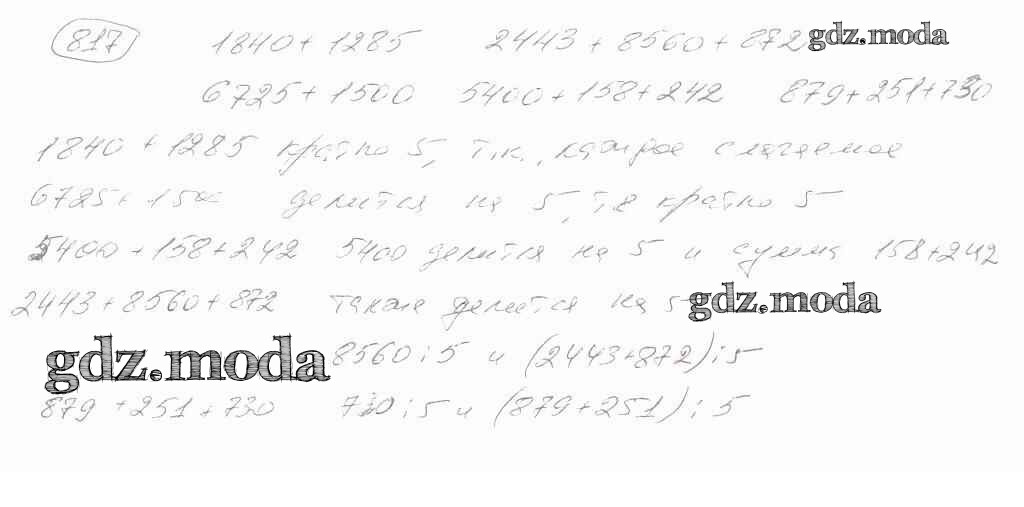 817 1840 + 1285 2443 + 8560 + 872 gdz.moda
6725 + 1500 5400 + 158 + 242 879 + 251 + 730
1840 + 1285 кратно 5, т.к. каждое слагаемое
6725 + 1500 делится на 5, т.е кратно 5
5400 + 158 + 242 5400 делится на 5 и сумма 158 + 242
2443 + 8560 + 872 также делится на 5 gdz.moda
gdz.moda 8560 : 5 и (2443 + 872) : 5
879 + 251 + 730 730 : 5 и (879 + 251) : 5